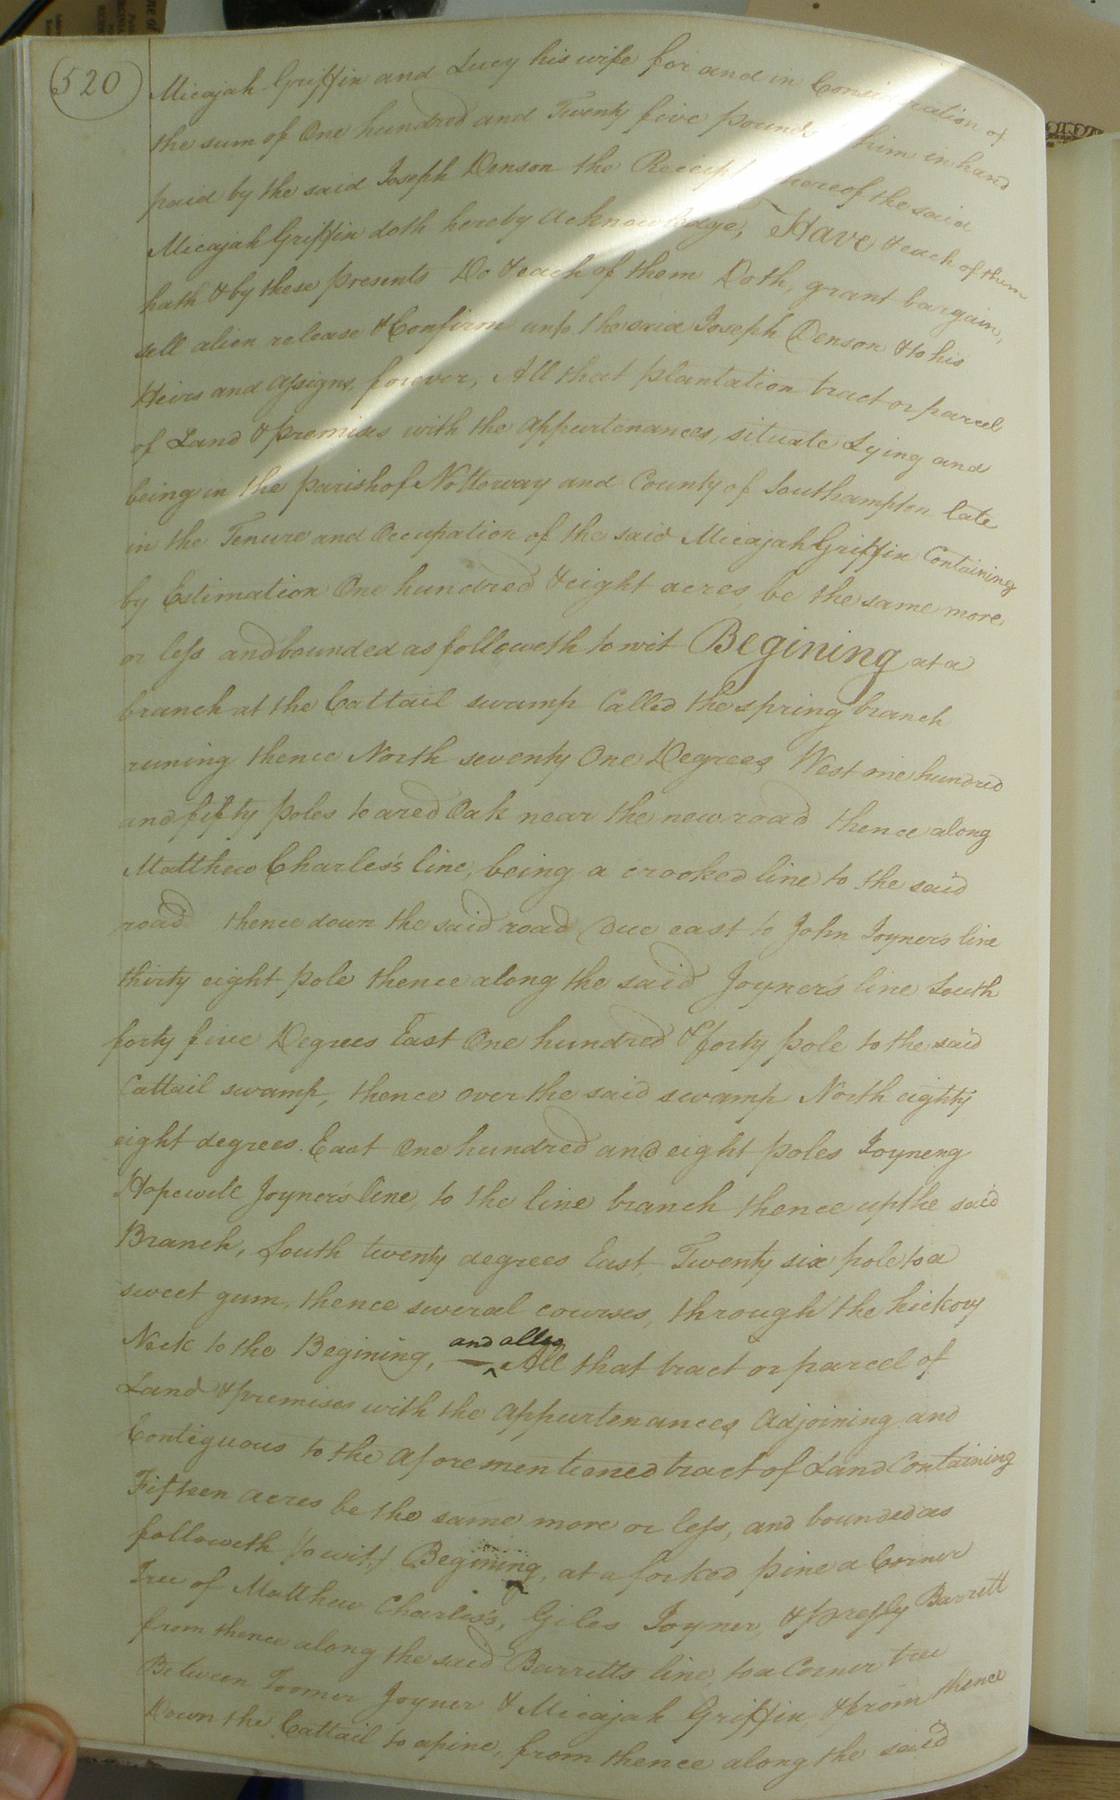 520
Micajah Griffin and Lucy his wife for and in Consideration of
the sum of One hundred and Twenty five pounds him in hand
paid by the said Joseph Denson the Receipt hereof the said
Micajah Griffin doth hereby acknowledge, Have & each of them
hath & by these presents Do & each of them Doth, grant bargain,
sell alien release & Confirm unto the said Joseph Denson & to his
Heirs and assigns, forever, All that plantation tract or parcel
of Land & premises with the appurtenances, situate Lying and
being in the parish of Nottoway and County of Southampton late
in the Tenure and Occupation of the said Micajah Griffin Containing
by Estimation One hundred & eight acres be the same more
or less and bounded as followeth to wit Begining at a
branch at the Cattail swamp Called the spring branch
runing thence North seventy One Degrees West one hundred
and fifty poles to a red Oak near the new road thence along
Matthew Charles's line, being a crooked line to the said
road thence down the said road Due east to John Joyners line
thirty eight pole thence along the said Joyner's line South
forty five Degrees East One hundred & forty pole to the said
Cattail swamp, thence over the said swamp North eighty
eight degrees. East One hundred and eight poles Joyneng
Hopewell Joyner's line, to the line branch thence up the said
Branch, South twenty degrees East Twenty six pole to a
sweet gum, thence several courses, through the hickory
Neck to the Begining, and allso All that tract or parcel of
Land & premises with the appurtenances Adjoining and
Contiguous to the aforementioned tract of Land Containing
Fifteen acres be the same more or less, and bounded as
followeth to wit, Begining, at a forked pine a Corner
Tree of Matthew Charles's, Giles Joyner, & Pressly Barrett
from thence along the said Barretts line, to a Corner tree
Between Toomer Joyner & Micajah Griffin & from thence
Down the Cattail to a pine, from thence along the said